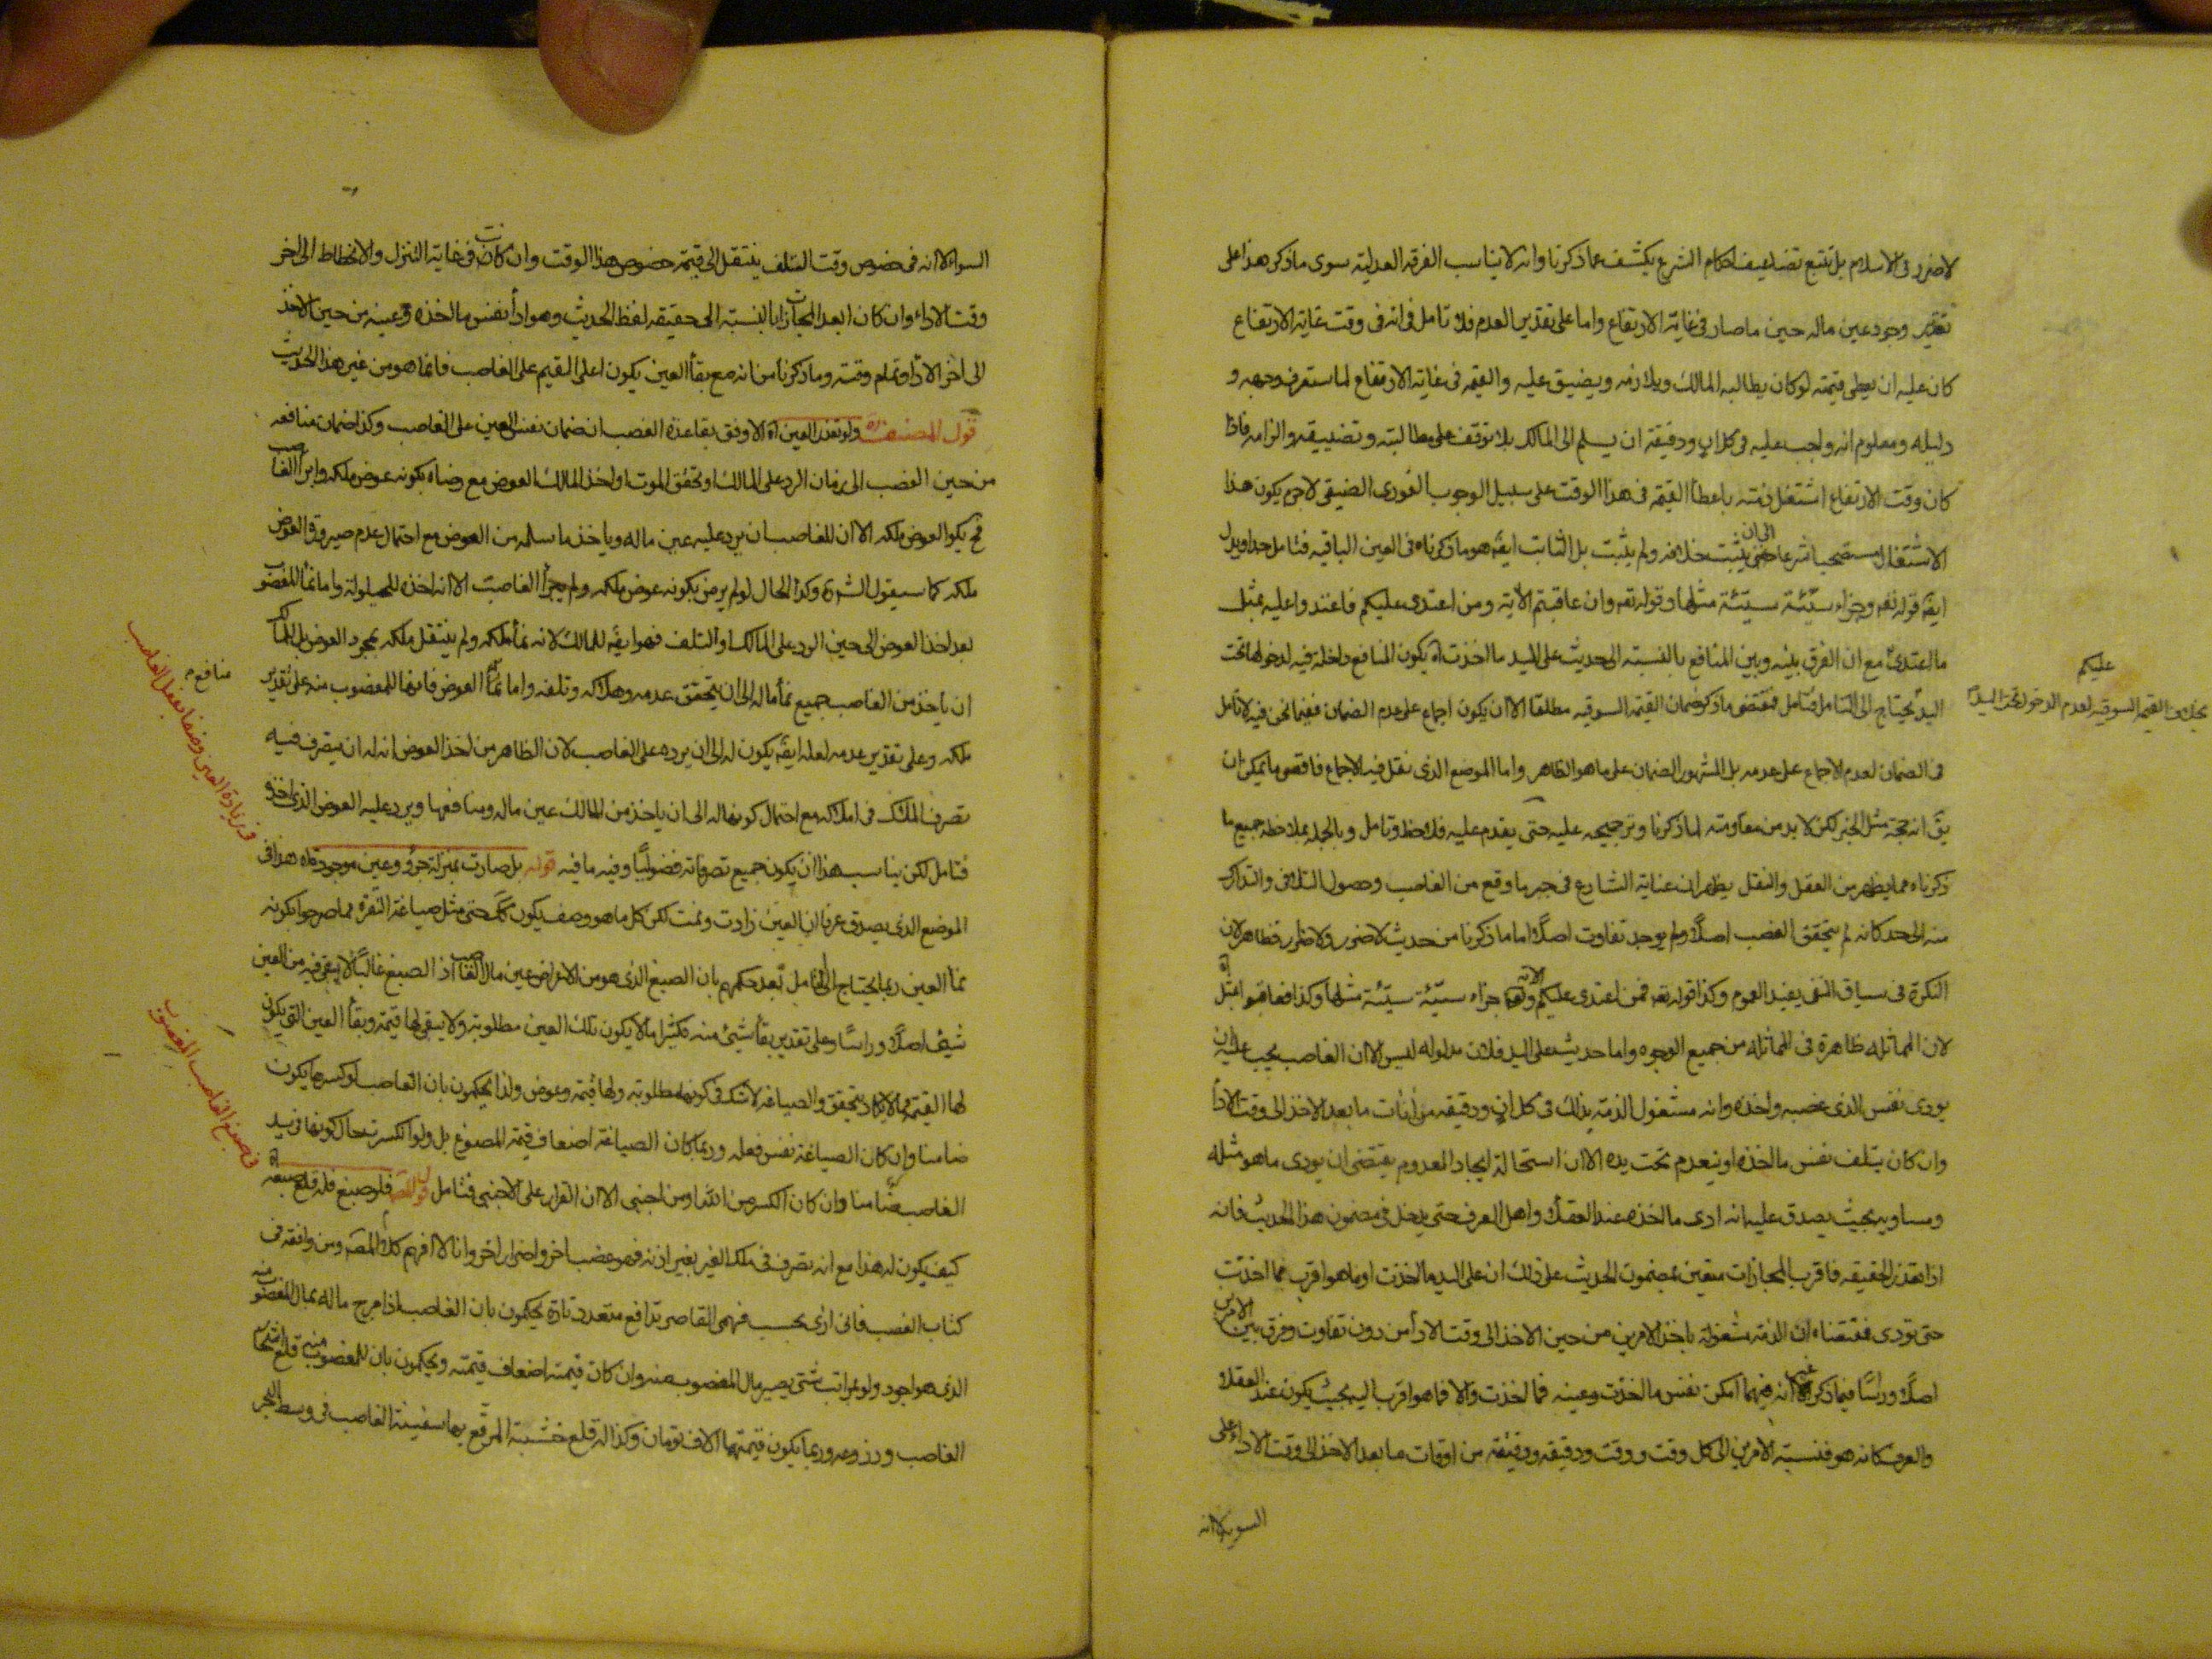 لا ضرر فى الاسلام بل تتبع تضاعيف احكام الشرع يكشف عما ذكرنا وانه لا يناسب الفرقة العدلية سوى ما ذكر هذا على
تقدير وجود عين ماله حين ما صار فى غاية الارتفاع واما على تقدير العدم فلا تامل فى انه فى وقت غاية الارتفاع
كان عليه ان يعطى قيمته لو كان يطالبه المالك ويلازمه ويضيق عليه والقيمة فى غاية الارتفاع لما ستعرف وجهه و
دليله ومعلوم انه واجب عليه فى كل ان ودقيقة ان يسلم الى المالك بلا توقف على مطالبته وتضييقه والزامه فاذا
كان وقت الارتفاع اشتغل ذمته باعطأ القيمة فى هذا الوقت على سبيل الوجوب الفورى الضيقى لا جرم يكون هذا
الاشتغال مستصحبا شرعا الى ان يثبت خلافه ولم يثبت بل الثابت ايضه هو ما ذكرناه فى العين الباقية فتامل جدا ويدل
ايضه قوله تعه وجزاء سيّئة سيّئة مثلها وقوله تعه وان عاقبتم الاية ومن اعتدى عليكم فاعتدوا عليه بمثل
ما اعتدى مع ان الفرق بينه وبين المنافع بالنسبة الى حديث على اليد ما اخذت اه يكون المنافع داخلة فيه لدخولها تحت
عليكم
اليد يحتاج الى التامل فتامل فمقتضى ما ذكر ضمان القيمة السوقية مطلقا الا ان يكون اجماع على عدم الضمان ففيما نحن فيه لا تامل
بخلاف القيمة السوقية لعدم الدخول تحت اليد
فى الضمان لعدم الاجماع على عدمه بل المشهور الضمان على ما هو الظاهر واما الموضع الذى نقل فيه الاجماع فاقصى ما يمكن ان
يق انه حجة مثل الخبر لكن لا بد من مقاومته لما ذكرنا وترجيحه عليه حتى يقدم عليه فلاحظ وتامل وبالجملة بملاحظة جميع ما
ذكرناه مما يظهر من العقل والنقل يظهر ان عناية الشارع فى جبر ما وقع من الغاصب وحصول التلافى والتدارك
منه الى حد كانه لم يتحقق الغصب اصلاً ولم يوجد تفاوت اصلاً اما ما ذكرنا من حديث لا ضرر ولا ضرار فظاهر لان
النكرة فى سياق النفى يفيد العموم وكذا قوله تعه فمن اعتدى عليكم الاية جزاء سيّئة سيّئة مثلها وكذا فعاقبوا بمثل اه
لان المماثلة ظاهرة فى المماثلة من جميع الوجوه واما حديث على اليد فلان مدلوله ليس الا ان الغاصب يجب عليه ان
يودى نفس الذى غصبه واخذه وانه مشغول الذمة بذلك فى كل ان ودقيقة من انات ما بعد الاخذ الى وقت الادأ
وان كان يتلف نفس ما اخذه او ينعدم تحت يده الا ان استحالة ايجاد المعدوم يقتضى ان يودى ما هو مثله
ومساويه بحيث يصدق عليه انه ادى ما اخذه عند العقلاء واهل العرف حتى يدخل فى مضمون هذا الحديث فانه
اذا تعذر الحقيقة فاقرب المجازات متعين فمضمون الحديث على ذلك ان على اليد ما اخذت او ما هو اقرب مما اخذت
حتى تودى فمقتضاه ان الذمة مشغولة باخذ الامرين من حين الاخذ الى وقت الادأ من دون تفاوت وفرق بين الامرين
اصلاً وراسًا فيما ذكر انه فيهما امكن نفس ما اخذت وعينه فما اخذت والا فما هو اقرب اليه بحيث يكون عند العقلاء
والعرف كانه هو فنسبة الامرين الى كل وقت ووقت ودقيقة ودقيقة من اوقات ما بعد الاخذ الى وقت الاداء على
السوية الا انه
السواء الا انه فى خصوص وقت التلف ينتقل الى قيمة خصوص هذا الوقت وان كانت فى غاية التنزل والانحطاط الى اخر
وقت الاداء وان كان ابعد المجازات بالنسبة الى حقيقة لفظ الحديث وهو ادأ نفس ما اخذه وعينه من حين الاخذ
الى اخر الادأ وتمام وقته وما ذكرنا من انه مع بقأ العين يكون اعلى القيم على الغاصب فانما هو من غير هذا الحديث
قول المصنف ره ولو تعذر العين اه الاوفق بقاعدة الغصب ان ضمان نفس العين على الغاصب وكذا ضمان منافعه
من حين الغصب الى زمان الرد على المالك او تحقق الموت او اخذ المالك العوض مع رضاه بكونه عوض ملكه وابرأ الغاصب
فح يكون العوض ملكه الا ان للغاصب ان يرد عليه عين ماله وياخذ ما سلمه من العوض مع احتمال عدم صيرورة العوض
ملكه كما سيقول الش ره وكذا الحال لو لم يرض بكونه عوض ملكه ولم يبرأ الغاصب الا انه اخذه للحيلولة واما نمأ المغضوب
بعد اخذ العوض الى حين الرد على المالك او التلف فهو ايضه للمالك لانه نمأ ملكه ولم ينتقل ملكه بمجرد العوض بل للمالك
ان ياخذ من الغاصب جميع نمأ ماله الى ان يتحقق عدمه وهلاكه وتلفه واما نمأ العوض فانها للمغصوب منه على تقدير
منافع
ملكه وعلى تقدير عدمه لعله ايضه يكون له الى ان يرده على الغاصب لان الظاهر من اخذ العوض انه له ان يتصرف فيه
تصرف الملاك فى املاكه مع احتمال كونها له الى ان ياخذ من المالك عين ماله ومنافعها ويرد عليه العوض الذى اخذه
فى زيادة العين وصفا بفعل الغاصب
فتامل لكن يناسب هذا ان يكون جميع تصرفاته فضوليًا وفيه ما فيه قوله بل صارت بمنزلة جزؤ وعين موجودة اه هذا فى
الموضع الذى يصدق عرفا ان العين زادت ونمت لكن كل ما هو وصف يكون كك حتى مثل صياغة النقرة مما صرحوا بكونه
نمأ العين ربما يحتاج الى التامل بعد حكمهم بان الصبغ الذى هو من الاعراض عين مال الغاصب اذ الصبغ غالبًا لا يبقى فيه من العين
شيئ اصلاً وراسًا وعلى تقدير بقأ شيئ منه فكثيرا ما لا يكون تلك العين مطلوبة ولا يبقى لها قيمة وبقأ العين التى يكون
لها القيمة مما لا يكاد يتحقق والصياغة لا شك فى كونها مطلوبة ولها قيمة وعوض ولذا يحكمون بان الغاصب لو كسرها يكون
ضامنا وان كان الصياغة نفس فعله وربما كان الصياغة اضعاف قيمة المصنوع بل ولو انكسرت حال كونها فى يد
فى صبغ الغاصب المغصوب
الغاصب ضامنا وان كان الكسر من الله او من اجنبى الا ان القرار على الاجنبى فتامل قول المصه فلو صبغ فله قلع صبغه اه
كيف يكون له هذا مع انه تصرف فى ملك الغير بغير اذنه فهو غصب اخر واضرار اخر وانا لا افهم كلام المصه ومن وافقه فى
كتاب الغصب فانى ارى بحسب فهمى القاصر تدافع متعددة تارة يحكمون بان الغاصب اذا مزج ماله بمال المغصوب منه
الذى هو اجود ولو بمراتب شتى يصير مال المغصوب منه وان كان قيمته اضعاف قيمته ويحكمون بان للمغصوب منه قلع اشجار
الغاصب وزروعه وربما يكون قيمتها الاف تومان وكذا له قلع خشبة المرقع بها سفينة الغاصب فى وسط البحر